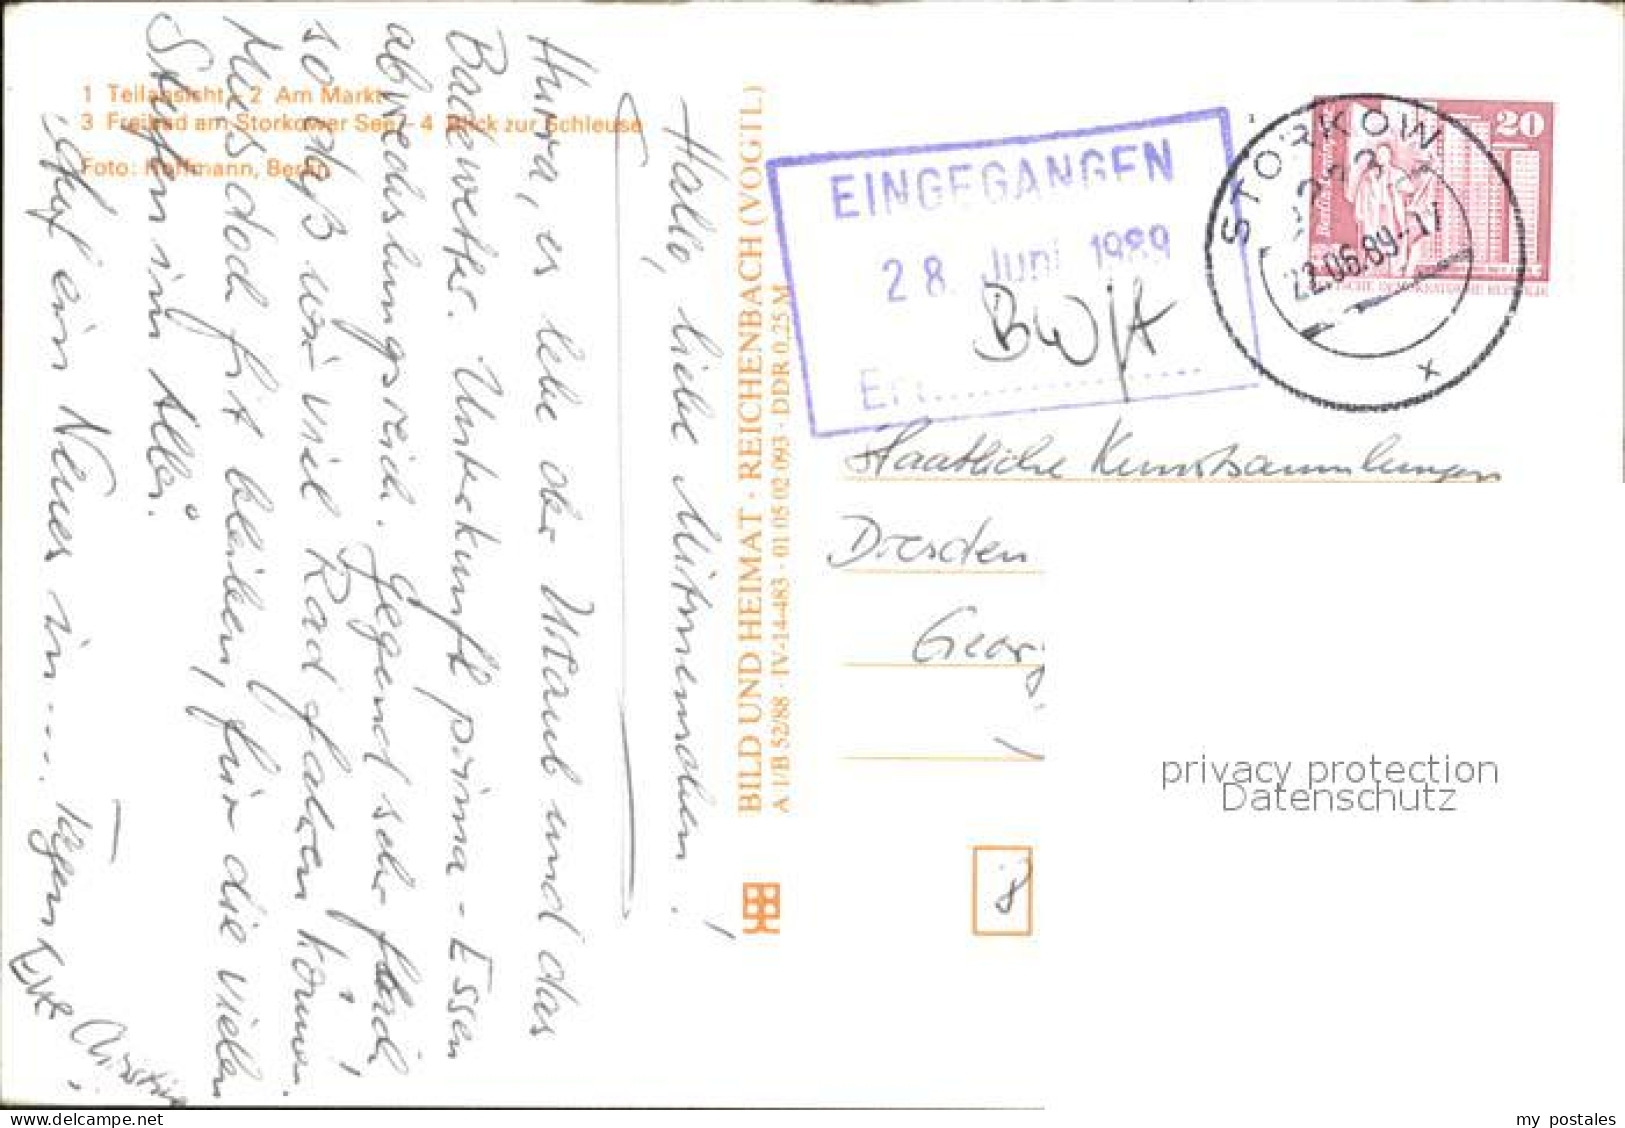 1 Teilansicht - 2 Am Markt
3 Freibad am Storkower See - 4 Blick zur Schleuse
Foto: Hoffmann, Berlin
Hallo, liebe Mitmenschen!
Hurra, es lebe der Urlaub und das
Badewetter. Unterkunft prima - Essen
abwechslungsreich. Gegend sehr flach,
sodaß wir viel Rad fahren können!
Muss doch fit bleiben, für die vielen
Stufen im Alber.
Auf ein Neues in....
Eure
Christine
BILD UND HEIMAT · REICHENBACH (VOGTL)
A 1/B 52/88 · IV-14-483 · 01 05 02 093 · DDR 0,25 M
EINGEGANGEN
28. Juni 1989
BW/A
Erl..................
STORKOW
1233
22.06.89-17
x
20
DEUTSCHE DEMOKRATISCHE REPUBLIK
Staatliche Kunstsammlungen
Dresden
Georg
8
privacy protection
Datenschutz
my postales